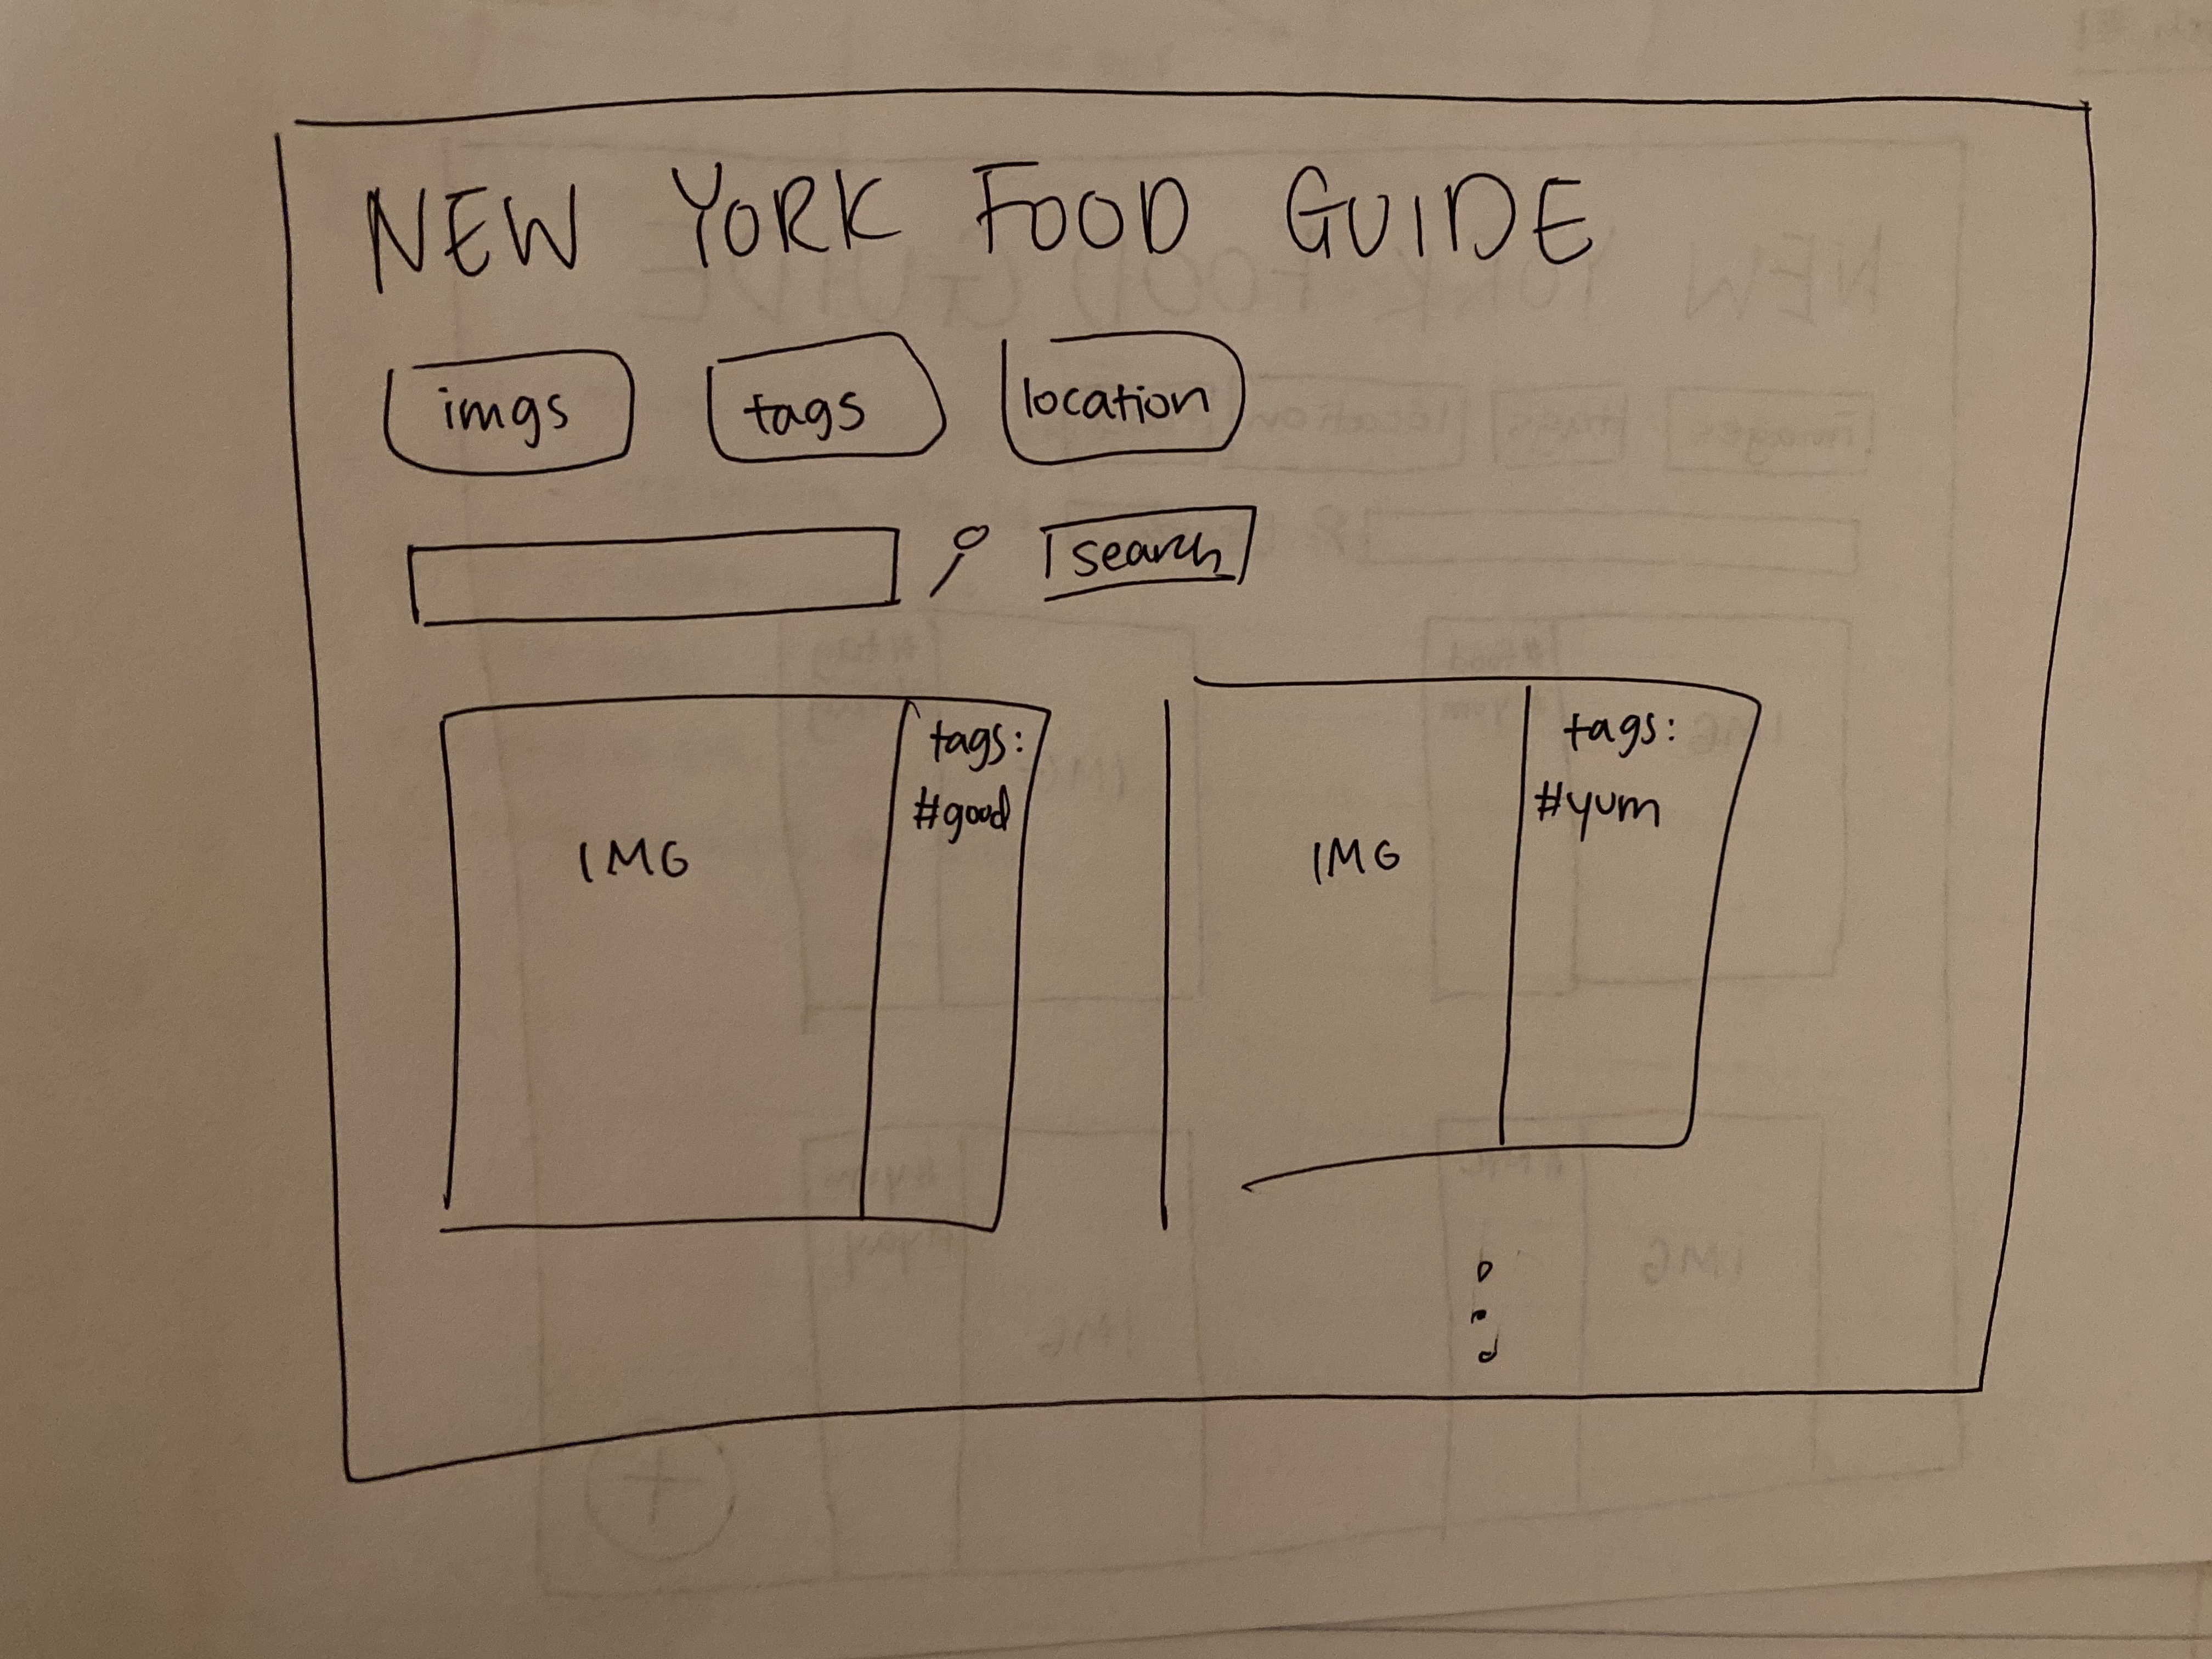 NEW YORK FOOD GUIDE
imgs tags location
search
IMG
tags:
#good
IMG
tags:
#yum